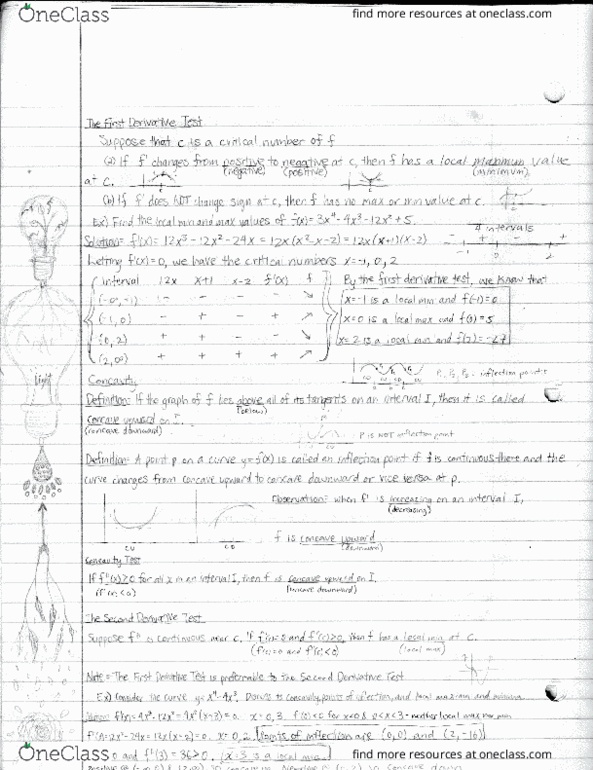 OneClass
find more resources at oneclass.com
The First Derivative Test
Suppose that c is a critical number of f
(a) If f' changes from positive to negative at c, then f has a local maximum value
(negative) (positive) (minimum)
at c.
(b) If f' does NOT change sign at c, then f has no max or min value at c.
Ex) Find the local min and max values of f(x) = 3x⁴ - 4x³ - 12x² + 5.
4 intervals
Solution: f'(x) = 12x³ - 12x² - 24x = 12x(x²-x-2) = 12x(x+1)(x-2)
-1 0 2
Letting f'(x)=0, we have the critical numbers x = -1, 0, 2
interval 12x x+1 x-2 f'(x) f
By the first derivative test, we know that
(-∞,-1) - - - - ↘
x=-1 is a local min and f(-1)=0
(-1, 0) - + - + ↗
x=0 is a local max and f(0)=5
(0, 2) + + - - ↘
x=2 is a local min and f(2)=-27
(2, ∞) + + + + ↗
Concavity
inflection points
Definition: If the graph of f lies above all of its tangents on an interval I, then it is called
(below)
concave upward on I.
(concave downward)
P is NOT inflection point
Definition: A point p on a curve y=f(x) is called an inflection point if f is continuous there and the
curve changes from concave upward to concave downward or vice versa at p.
Observation: when f' is increasing on an interval I,
(decreasing)
f is concave upward
(downward)
CU CD
Concavity Test
If f''(x)>0 for all x in an interval I, then f is concave upward on I.
(concave downward)
light
The Second Derivative Test
Suppose f'' is continuous near c. If f'(c)=0 and f''(c)>0, then f has a local min at c.
(f'(c)=0 and f''(c)<0) (local max)
Note: The First Derivative Test is preferable to the Second Derivative Test
Ex) Consider the curve y=x⁴-4x³. Discuss concavity, points of inflection, and local maximum and minima.
f'(x)=4x³-12x²=4x²(x-3)=0. x=0,3.
f''(x)=12x²-24x=12x(x-2)=0. x=0,2. Points of inflection are (0,0) and (2,-16)
0 and f''(3)=36>0, x=3 is a local min.
OneClass
find more resources at oneclass.com